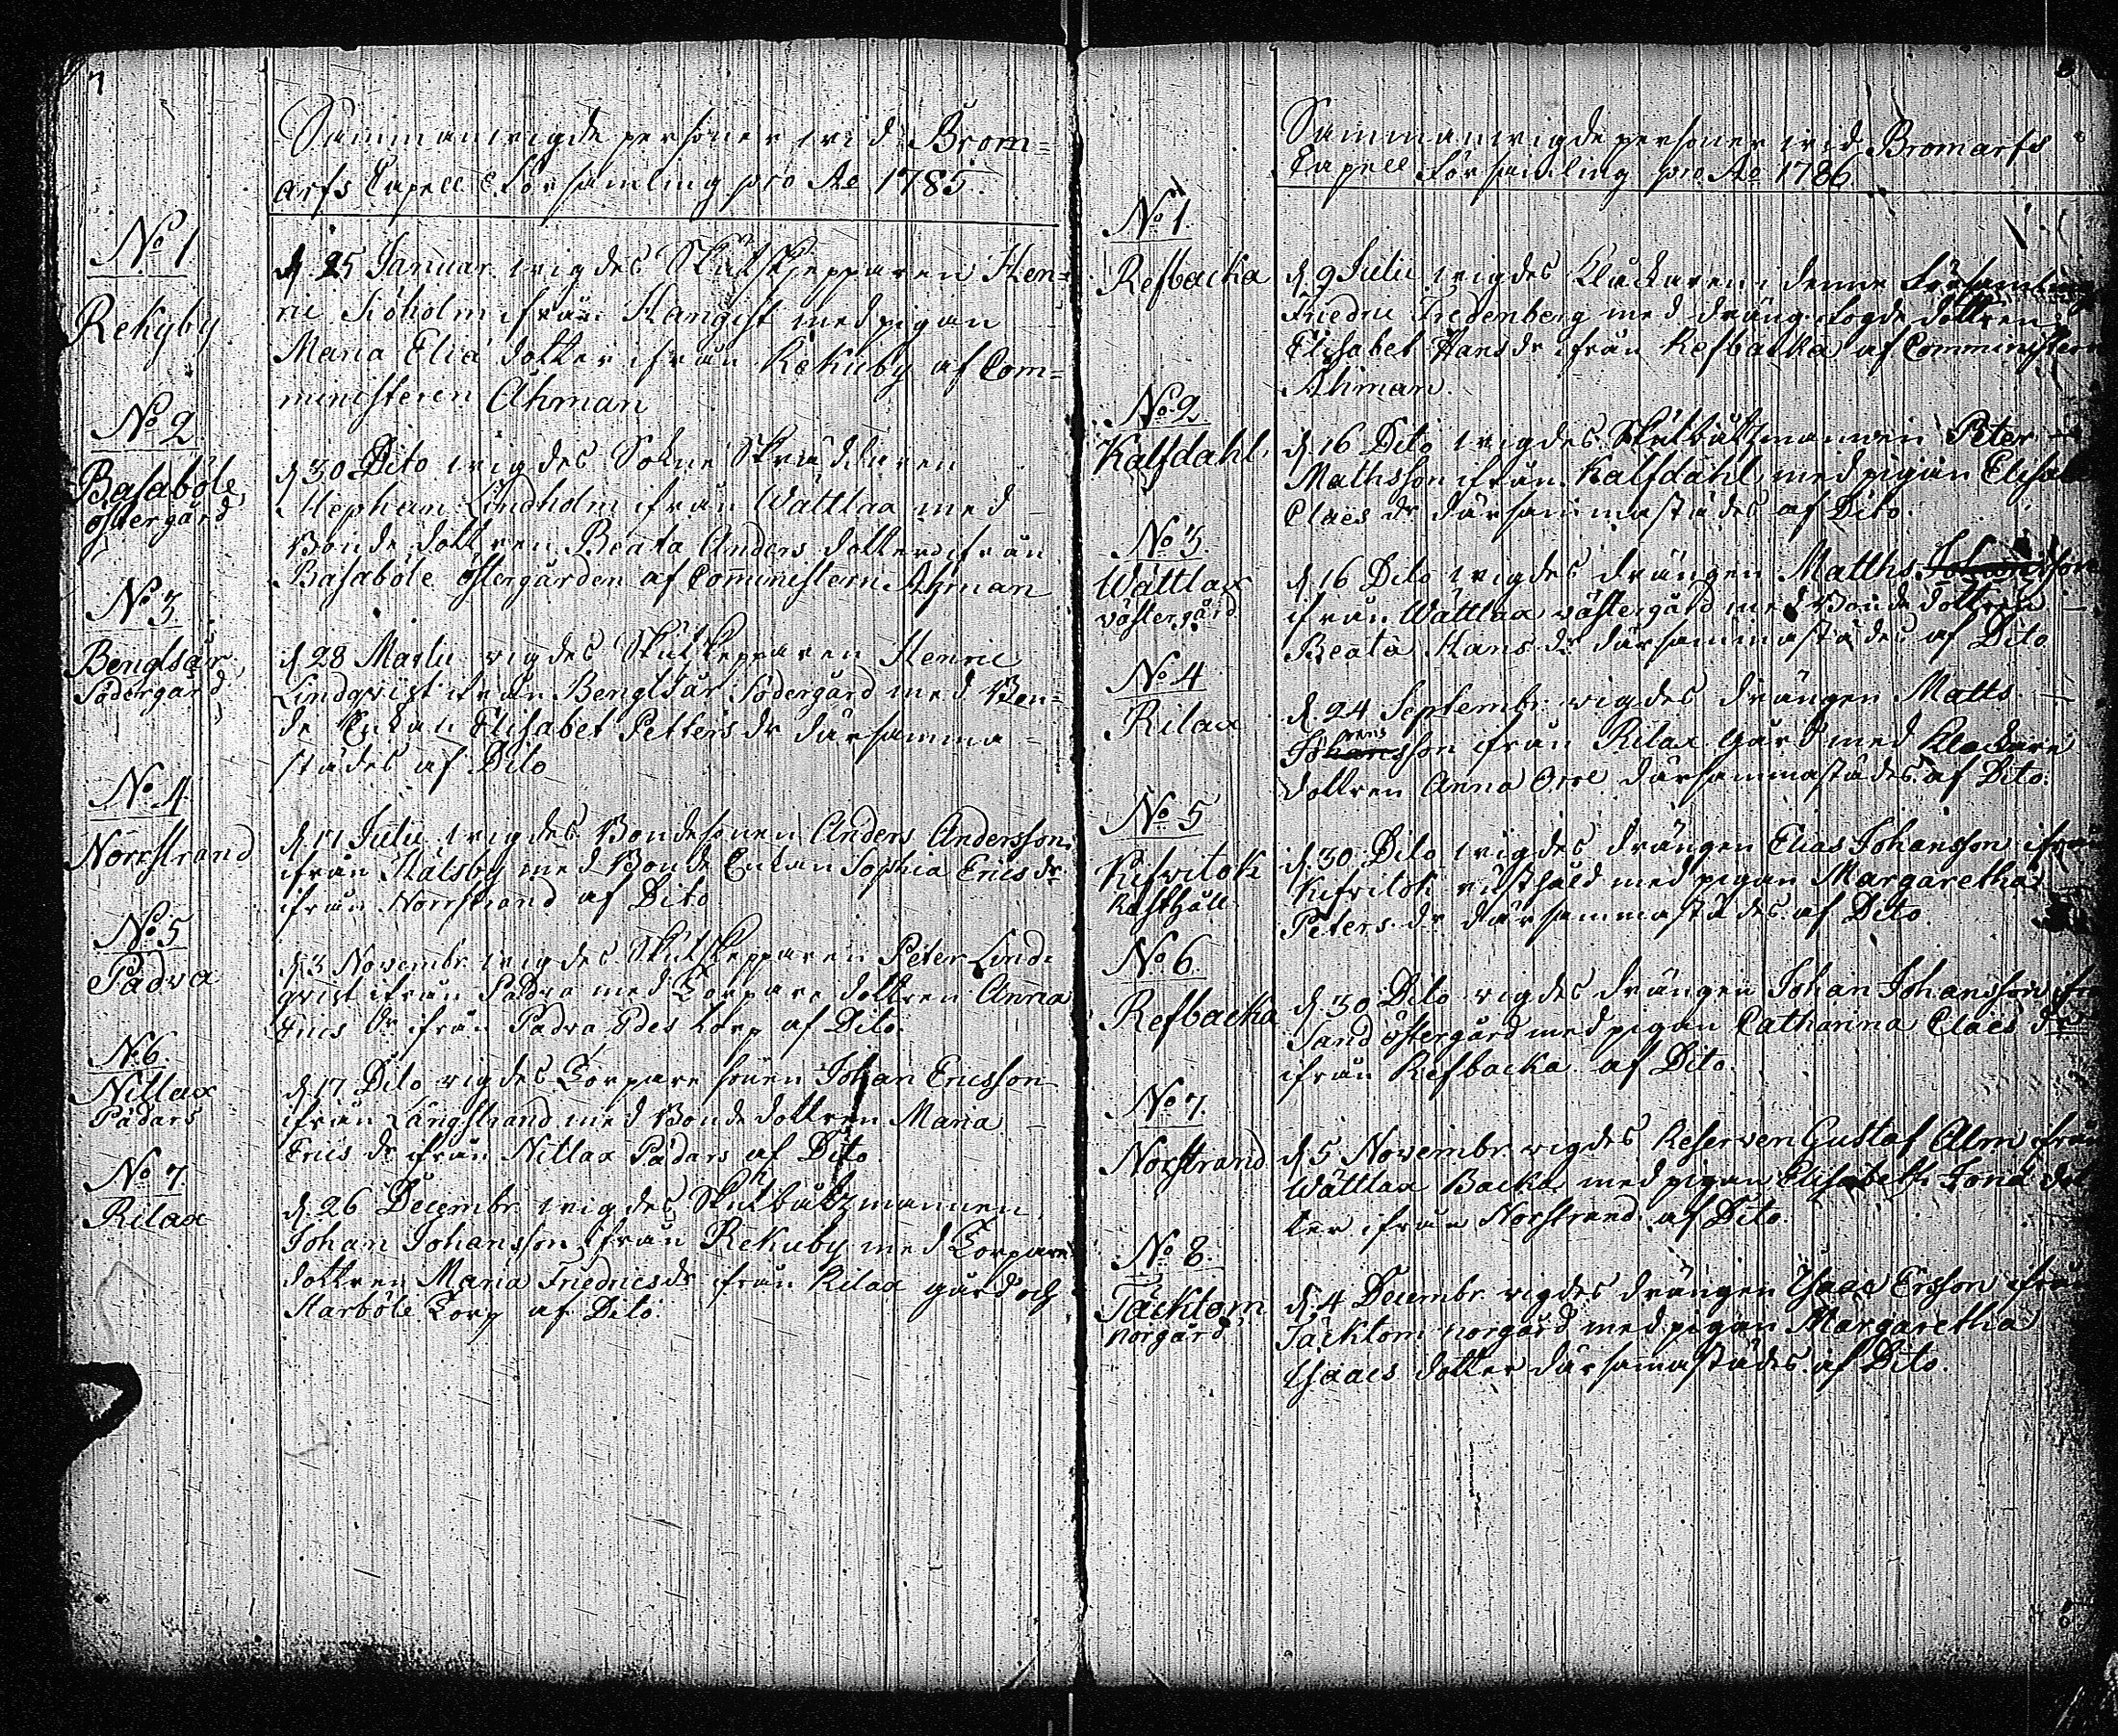 7
Sammanvigde personer wid Brom=
arfs Capell Församling pro Ao 1785.
No 1
Rekuby
d. 25 Januar. wigdes Skutskjepparen Hen=
ric Siöholm ifrån Hangist med pigan
Maria Elia dotter ifrån Rekuby af Com=
ministeren Ahman
No 2
Basaböle
östergård
d. 30 Dito wigdes Sokne Skräddaren
Stephan Lindholm ifrån Wättlax med
Bonde dottren Beata Anders dotter ifrån
Basaböle östergården af Comministern Ahman
No 3
Bengtsår
Södergård
d. 28 Martii wigdes Skutskepparen Henric
Lindqvist ifrån Bengtsår Södergård med Bon=
de Enkan Elisabet Petters dr därsamma=
städes af Dito
No 4
Norrstrand
d. 17 Julii wigdes Bondesonen Anders Andersson
ifrån Kalsby med Bonde Enkan Sophia Erics dr
ifrån Norrstrand af Dito
No 5
Padva
d. 3 Novembr. wigdes Skutskepparen Peter Lind=
qvist ifrån Padva med Torpare dottren Anna
Erics dr ifrån Padva Edes torp af Dito.
No 6
Nitlax
Pädars
d. 17 Dito wigdes Torpare sonen Johan Ericsson
ifrån Långstrand med Bonde dottren Maria
Erics dr ifrån Nitlax Pädars af Dito
No 7.
Rilax
d. 26 Decembr. wigdes Skutbåtzmannen
Johan Johansson ifrån Rekuby med Torpare
dottren Maria Friedrics dr ifrån Rilax gård och
Starböle Torp af Dito.
8
Sammanvigde personer wid Bromarfs
Capell Församling pro Ao 1786.
No 1.
Refbacka
d. 9 Julii wigdes Klåckaren i denne Församling
Friedric Fredenberg med dräng fogde dottren
Elisabet Hans dr ifrån Refbacka af Comministern
Ahman.
No 2
Kalfdahl.
d. 16 Dito wigdes Skutbåtzmannen Peter
Mathsson ifrån Kalfdahl med pigan Elisabet
Claes dr därsammastädes af Dito.
No 3.
Wättlax
västergård
d. 16 Dito wigdes drängen Matths Johansson
ifrån Wättlax västergård med Bonde dottren
Beata Hans dr därsammastädes af Dito
No 4
Rilax
d. 24 Septembr. wigdes drängen Matts
Johansson ifrån Rilax gård med Klockare
dottren Anna Orre därsammastädes af Dito.
No 5
Kifvitok
Rusthåll
d. 30 Dito wigdes drängen Elias Johansson ifrån
Kifvitok rusthåld med pigan Margaretha
Peters dr därsammastädes af Dito
No 6
Refbacka
d. 30 Dito wigdes drängen Johan Johansson ifrån
Sand östergård med pigan Catharina Claes dr
ifrån Refbacka af Dito.
No 7.
Norstrand
d. 5 Novembr. wigdes Reserven Gustaf Alm ifrån
Wättlax Backa med pigan Elisabeth Jona dot
ter ifrån Norstrand af Dito.
No 8.
Täcktom
norgård
d. 4 Decembr. wigdes drängen Isaac Ersson ifrån
Täcktom norgård med pigan Margaretha
Isaacs dotter därsammastädes af Dito.